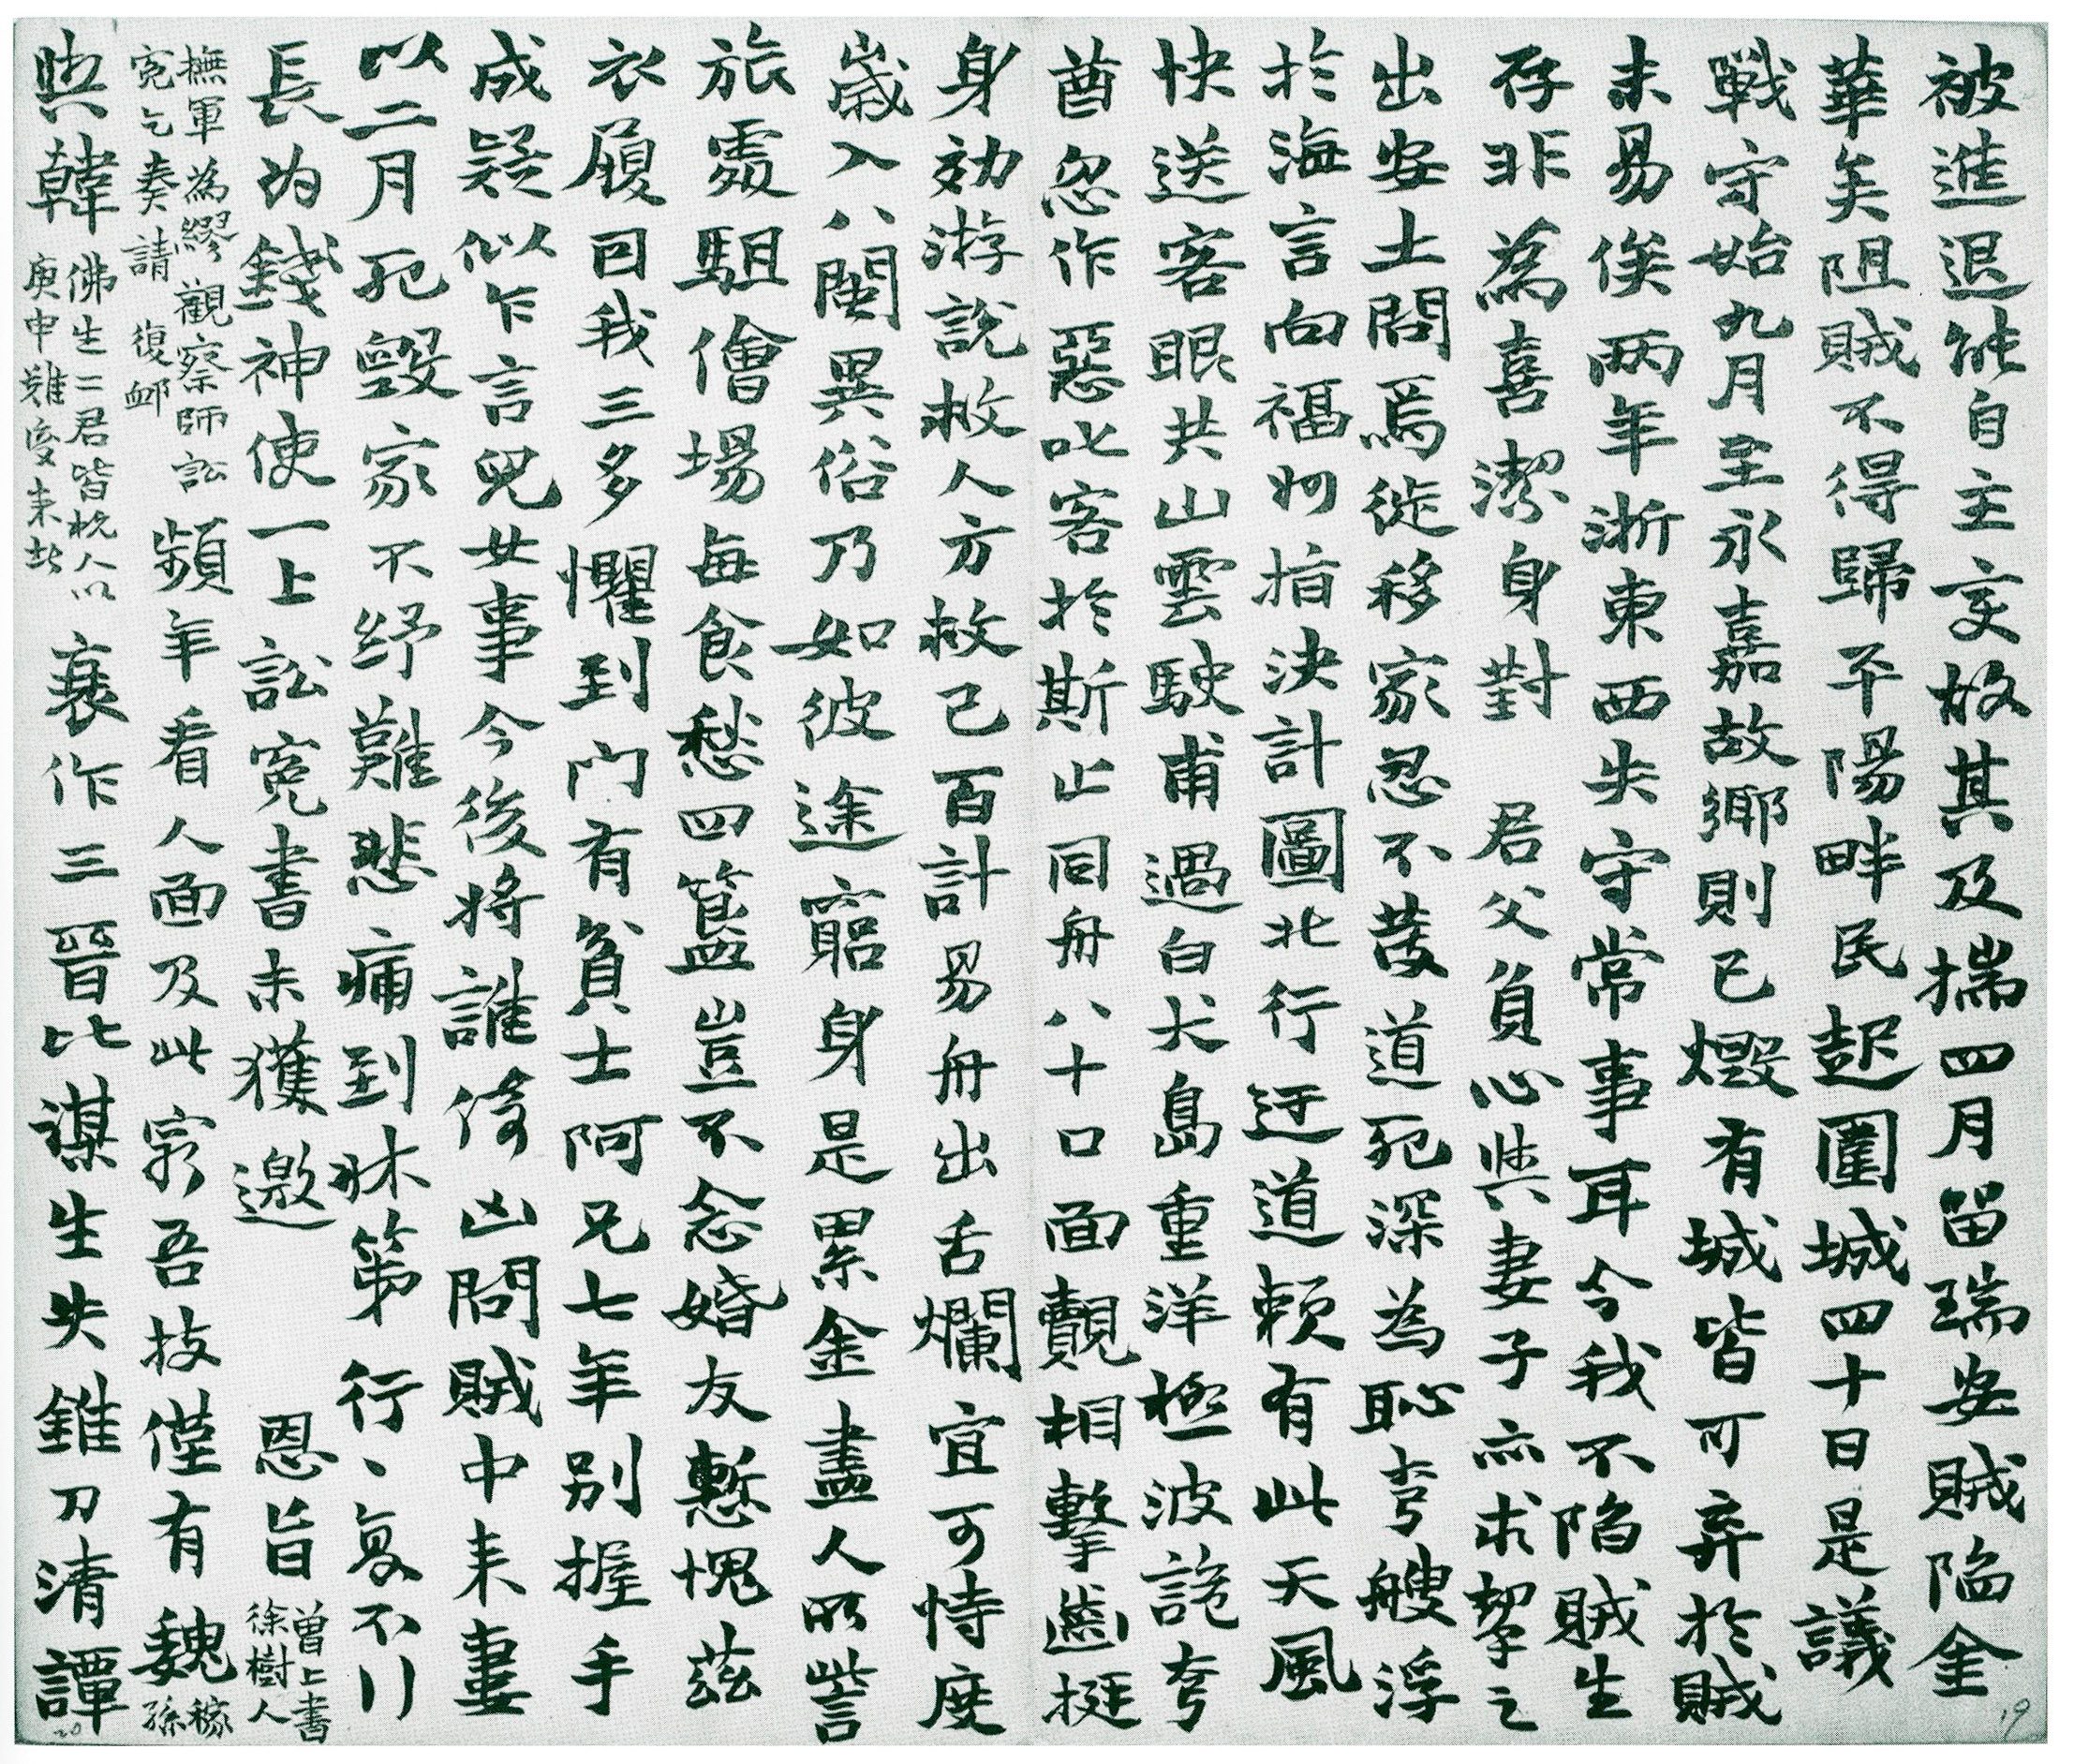 被進退能自主交放其及揣四月留瑞安賊陷金
華矣阻賊不得歸平陽畔民起圍城四十日是議
戰守始九月至永嘉故鄉則已燬有城皆可弃於賊
未易俟兩年浙東西失守常事耳今我不陷賊生
存非為喜潔身對 君父負心與妻子亦求挈之
出安土問焉徙移家忍不茇道死深為恥夸艘浮
於海言向福州指決計圖北行迂道賴有此天風
快送客眼共山雲駛甫過白犬島重洋極波詭夸
酋忽作惡叱客於斯止同舟八十口面覿相擊齒挺
身効游說救人方救己百計易舟出舌爛宜可恃度
嵗入八閩異俗乃如彼途窮身是累金盡人所訾
旅處駔儈場每食愁四簋豈不念婚友慙愧茲
衣履因我三多懼到門有貧士阿兄七年別握手
成疑似乍言兒女事今後將誰倚凶問賊中来妻
以二月死毀家不紓難悲痛到牀第行、復不川
長為錢神使一上訟冤書未獲 邀 恩旨 曾上書徐樹人
撫軍為繆觀察師訟冤乞奏請 復卹 頻年看人面及此窮吾技僅有魏 稼孫
與韓 佛生二君皆杭人以庚申難後来此 衰作三晉比謀生失錐刀清譚
19
20